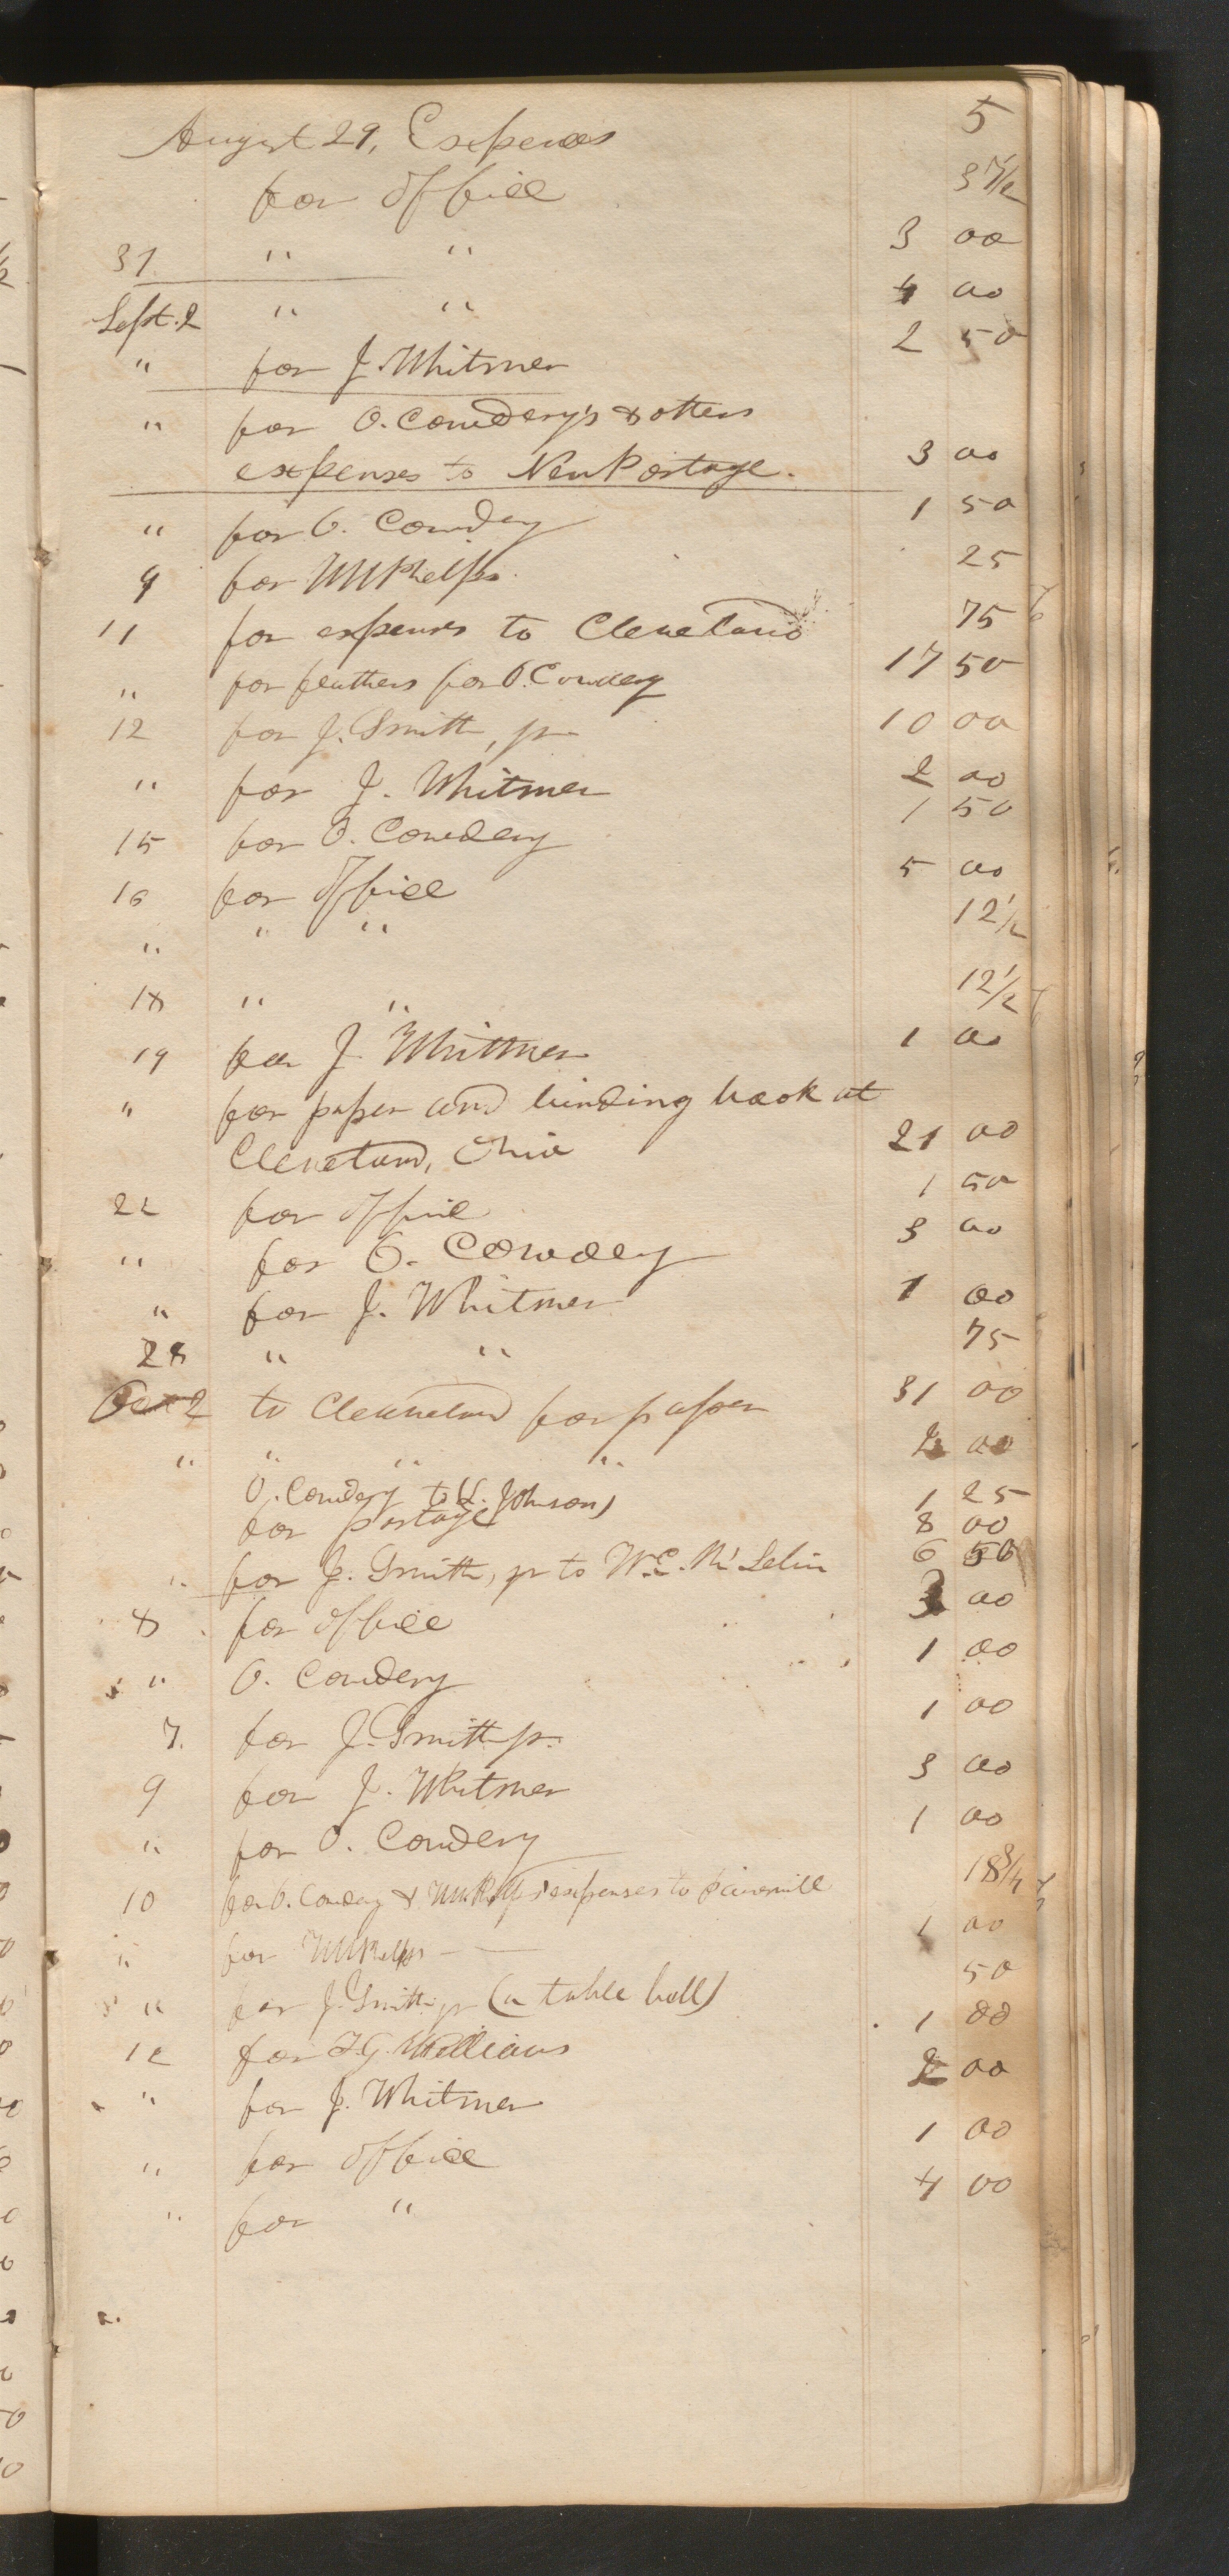 5
August 29, Expences
for office 37 1/2
31 " " 3 00
Sept. 2 " " 4 00
" for J. Whitmer 2 50
" for O. Cowdery's & others
expenses to New Portage. 3 00
" for O. Cowdery 1 50
9 for WW Phelps. 25
11 for expenses to Cleveland 75
" for feathers for O. Cowdery 17 50
12 for J. Smith, jr 10 00
" for J. Whitmer 2 00
15 for O. Cowdery 1 50
16 for office 5 00
" " " 12 1/2
18 " " 12 1/2
19 for J. Whitmer 1 00
" for paper and binding book at
Cleveland, Ohio 21 00
22 for office 1 50
" for O. Cowdery 3 00
" for J. Whitmer 1 00
28 " " 75
Oct 2 to Cleaveland for paper 31 00
" " " " 2 00
O. Cowdery to Johnson) 1 25
for postage 8 00
" for J. Smith, jr to W. E. Mc Lelin 6 50
8 for office 3 00
" O. Cowdery 1 00
7. for J. Smith jr. 1 00
9 for J. Whitmer 3 00
" for O. Cowdery 1 00
10 for O. Cowdery & expenses to Painsville 18 3/4
" for WW Phelps 1 00
" for J. Smith jr (a table bell) 50
12 for F. G. Williams 1 00
" for J. Whitmer 2 00
" for office 1 00
" for " 4 00